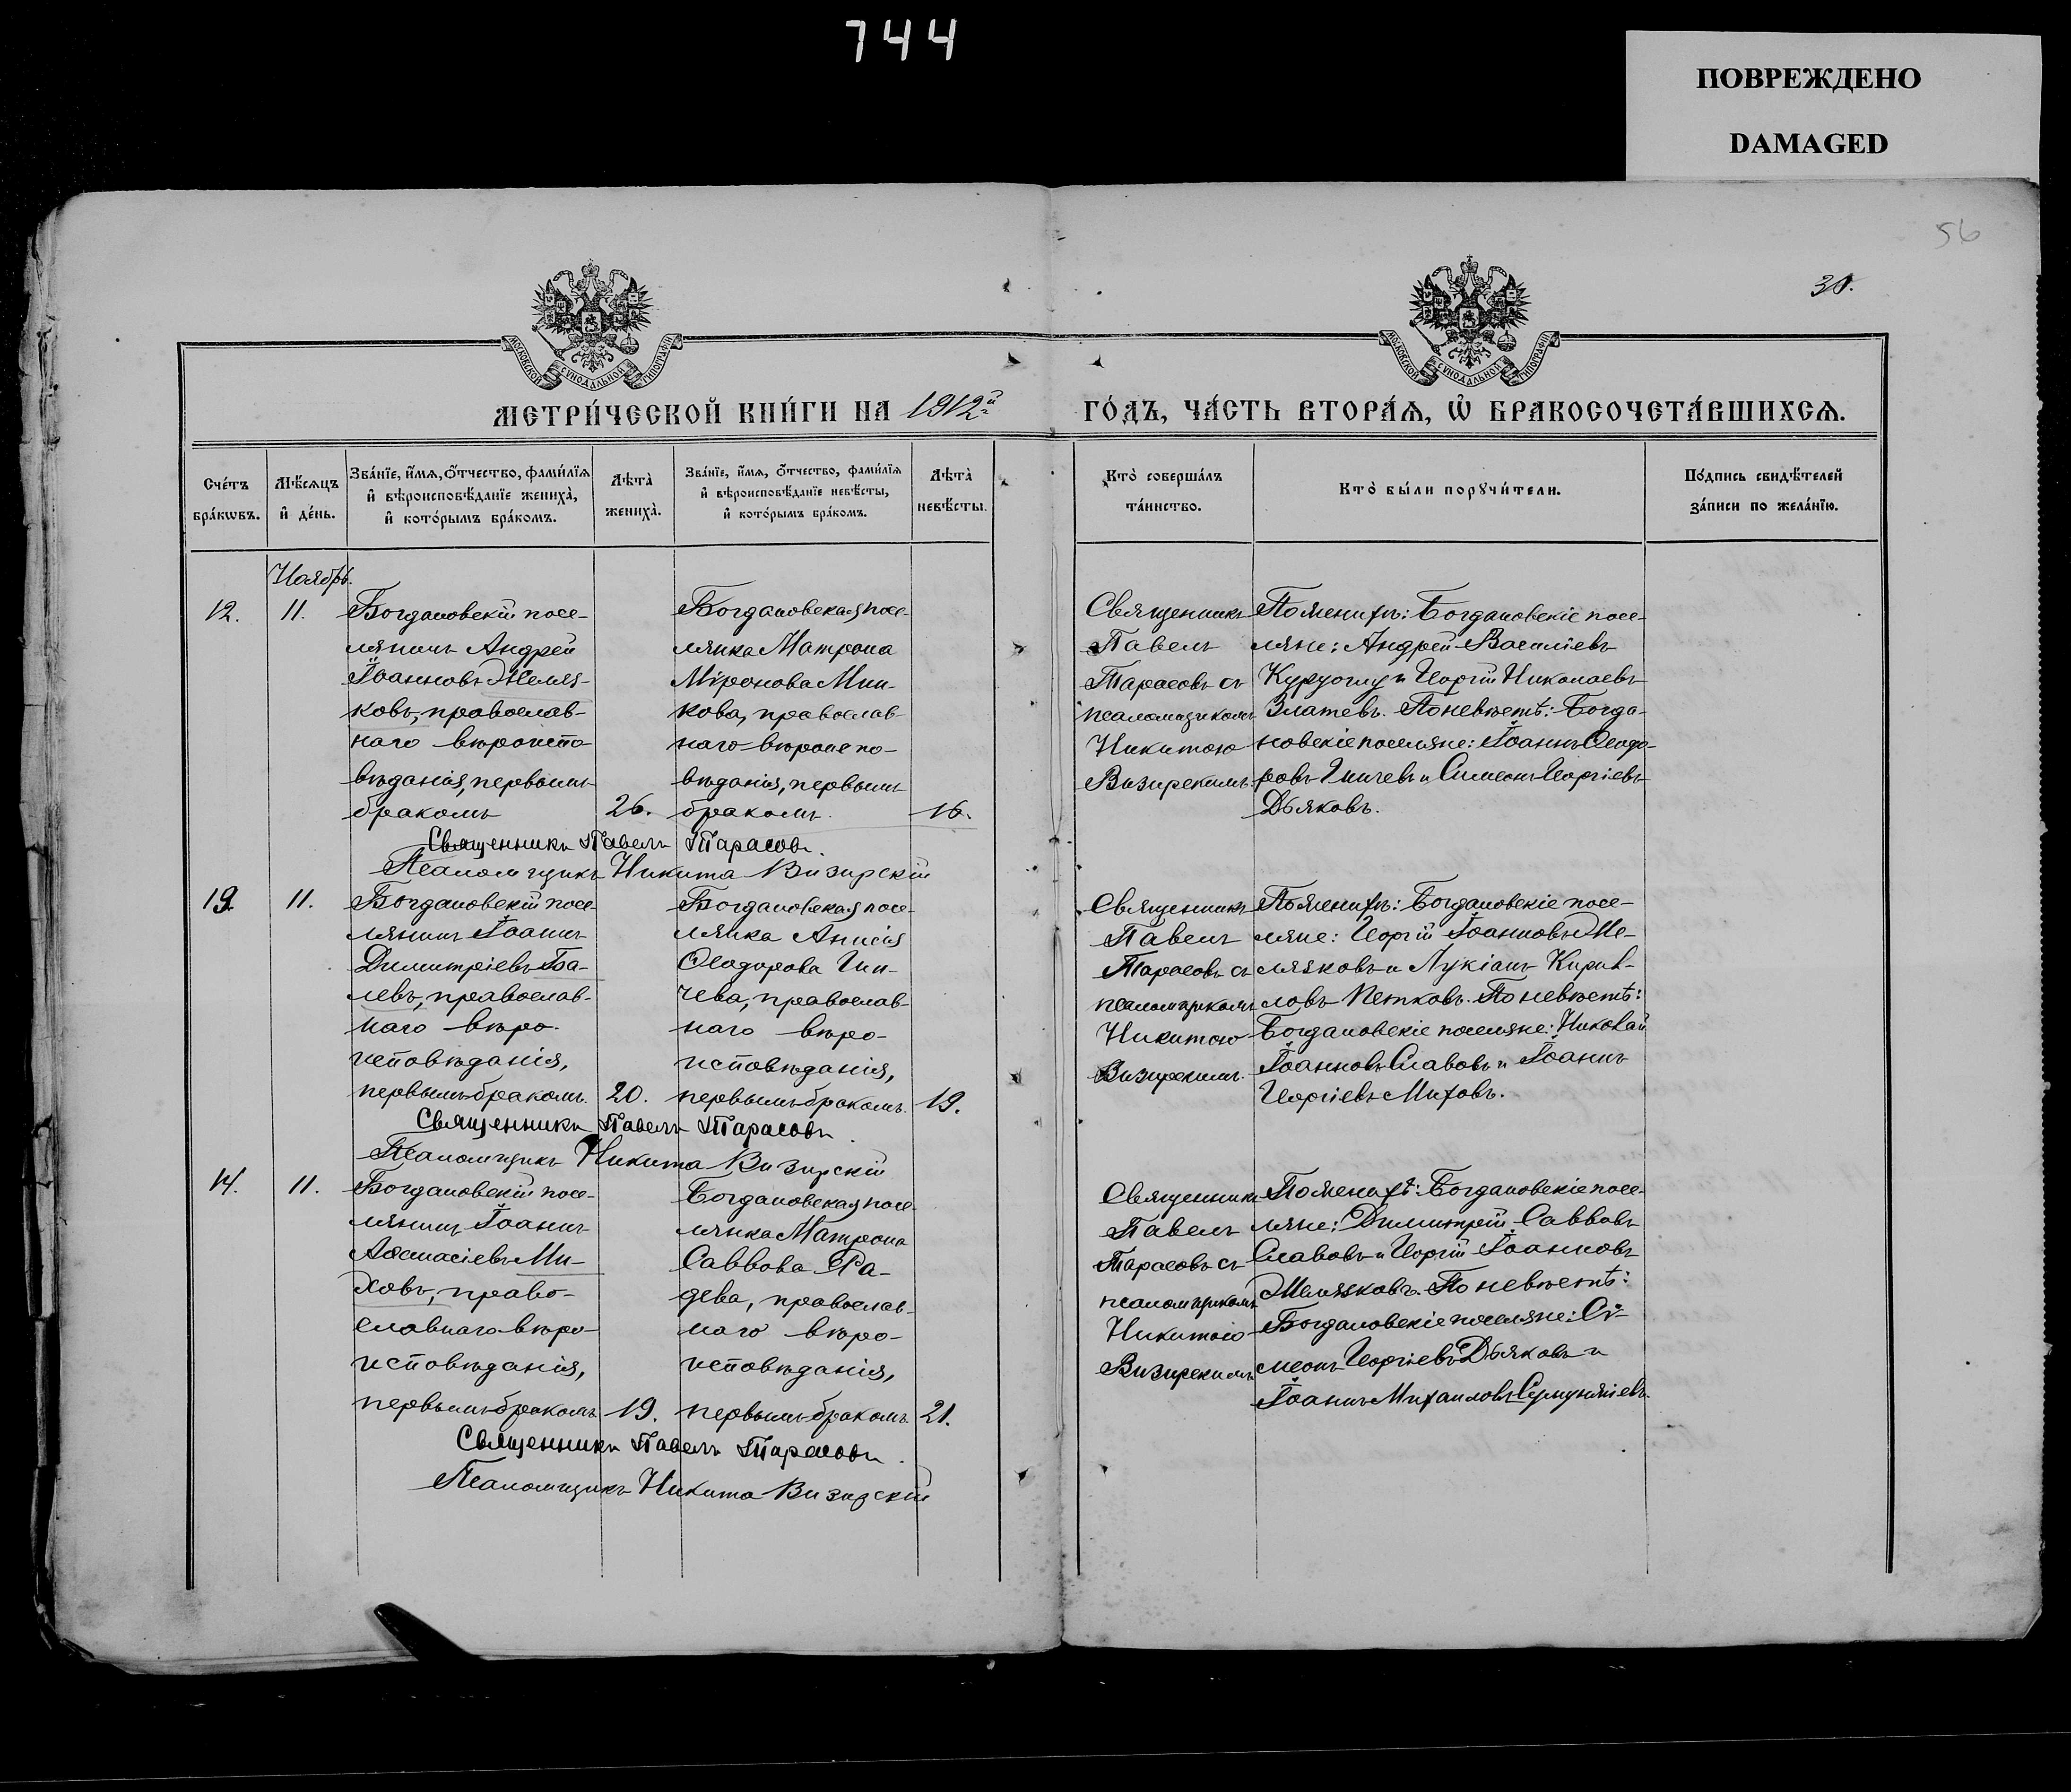 744
ПОВРЕЖДЕНО
DAMAGED
56
30.
МОСКОВСКОЙ СѴНОДАЛЬНОЙ ТИПОГРАФІИ
МОСКОВСКОЙ СѴНОДАЛЬНОЙ ТИПОГРАФІИ
МЕТРИ́ЧЕСКОЙ КНИ́ГИ НА 1912й
ГО́ДЪ, ЧА́СТЬ ВТОРА́Я, Ѡ҆ БРАКОСОЧЕТА́ВШИХСЯ.
Сче́тъ бра́кѡвъ.
Мѣ́сяцъ и҆ де́нь.
Зва́нїе, и҆́мя, ѻ҆́тчество, фами́лїя
и҆ вѣроисповѣ́данїе жениха̀,
и҆ кото́рымъ бра́комъ.
Лѣта̀ жениха̀.
Зва́нїе, и҆́мя, ѻ҆́тчество, фами́лїя
и҆ вѣроисповѣ́данїе невѣ́сты,
и҆ кото́рымъ бра́комъ.
Лѣта̀ невѣ́сты.
Кто̀ соверша́лъ
та́инство.
Кто̀ бы́ли порꙋчи́тели.
По́дпись свидѣ́телей
за́писи по жела́нїю.
Ноябрь.
12.
11.
Богдановскій посе-
лянинъ Андрей
Іоанновъ Желяз-
ковъ, православ-
наго вѣроиспо-
вѣданія, первымъ
бракомъ
26.
Богдановская посе-
лянка Матрона
Міронова Мин-
кова, православ-
наго вѣроиспо-
вѣданія, первымъ
бракомъ.
16.
Священникъ
Павелъ
Тарасовъ съ
псаломщикомъ
Никитою
Визирскимъ.
По женихѣ: Богдановскіе посе-
ляне: Андрей Василіевъ
Куруоглу и Георгій Николаевъ
Златевъ. По невѣстѣ: Богда-
новскіе поселяне: Іоаннъ Ѳеодо-
ровъ Гинчевъ и Симеонъ Георгіевъ
Дьяковъ.
Священникъ Павелъ Тарасовъ.
Псаломщикъ Никита Визирскій
13.
11.
Богдановскій посе-
лянинъ Іоаннъ
Димитріевъ Ба-
левъ, православ-
наго вѣро-
исповѣданія,
первымъ бракомъ.
20.
Богдановская посе-
лянка Анисія
Ѳеодорова Гин-
чева, православ-
наго вѣро-
исповѣданія,
первымъ бракомъ.
19.
Священникъ
Павелъ
Тарасовъ съ
псаломщикомъ
Никитою
Визирскимъ.
По женихѣ: Богдановскіе посе-
ляне: Георгій Іоанновъ Же-
лязковъ и Лукіанъ Кирил-
ловъ Петковъ. По невѣстѣ:
Богдановскіе поселяне: Николай
Іоанновъ Славовъ и Іоаннъ
Георгіевъ Миховъ.
Священникъ Павелъ Тарасовъ.
Псаломщикъ Никита Визирскій
14.
11.
Богдановскій посе-
лянинъ Іоаннъ
Аѳанасіевъ Ми-
ховъ, право-
славнаго вѣро-
исповѣданія,
первымъ бракомъ
19.
Богдановская посе-
лянка Матрона
Саввова Ра-
дева, православ-
наго вѣро-
исповѣданія,
первымъ бракомъ
21.
Священникъ
Павелъ
Тарасовъ съ
псаломщикомъ
Никитою
Визирскимъ
По женихѣ: Богдановскіе посе-
ляне: Димитрій Саввовъ
Славовъ и Георгій Іоанновъ
Желязковъ. По невѣстѣ:
Богдановскіе поселяне: Си-
меонъ Георгіевъ Дьяковъ и
Іоаннъ Михаиловъ
Священникъ Павелъ Тарасовъ.
Псаломщикъ Никита Визирскій